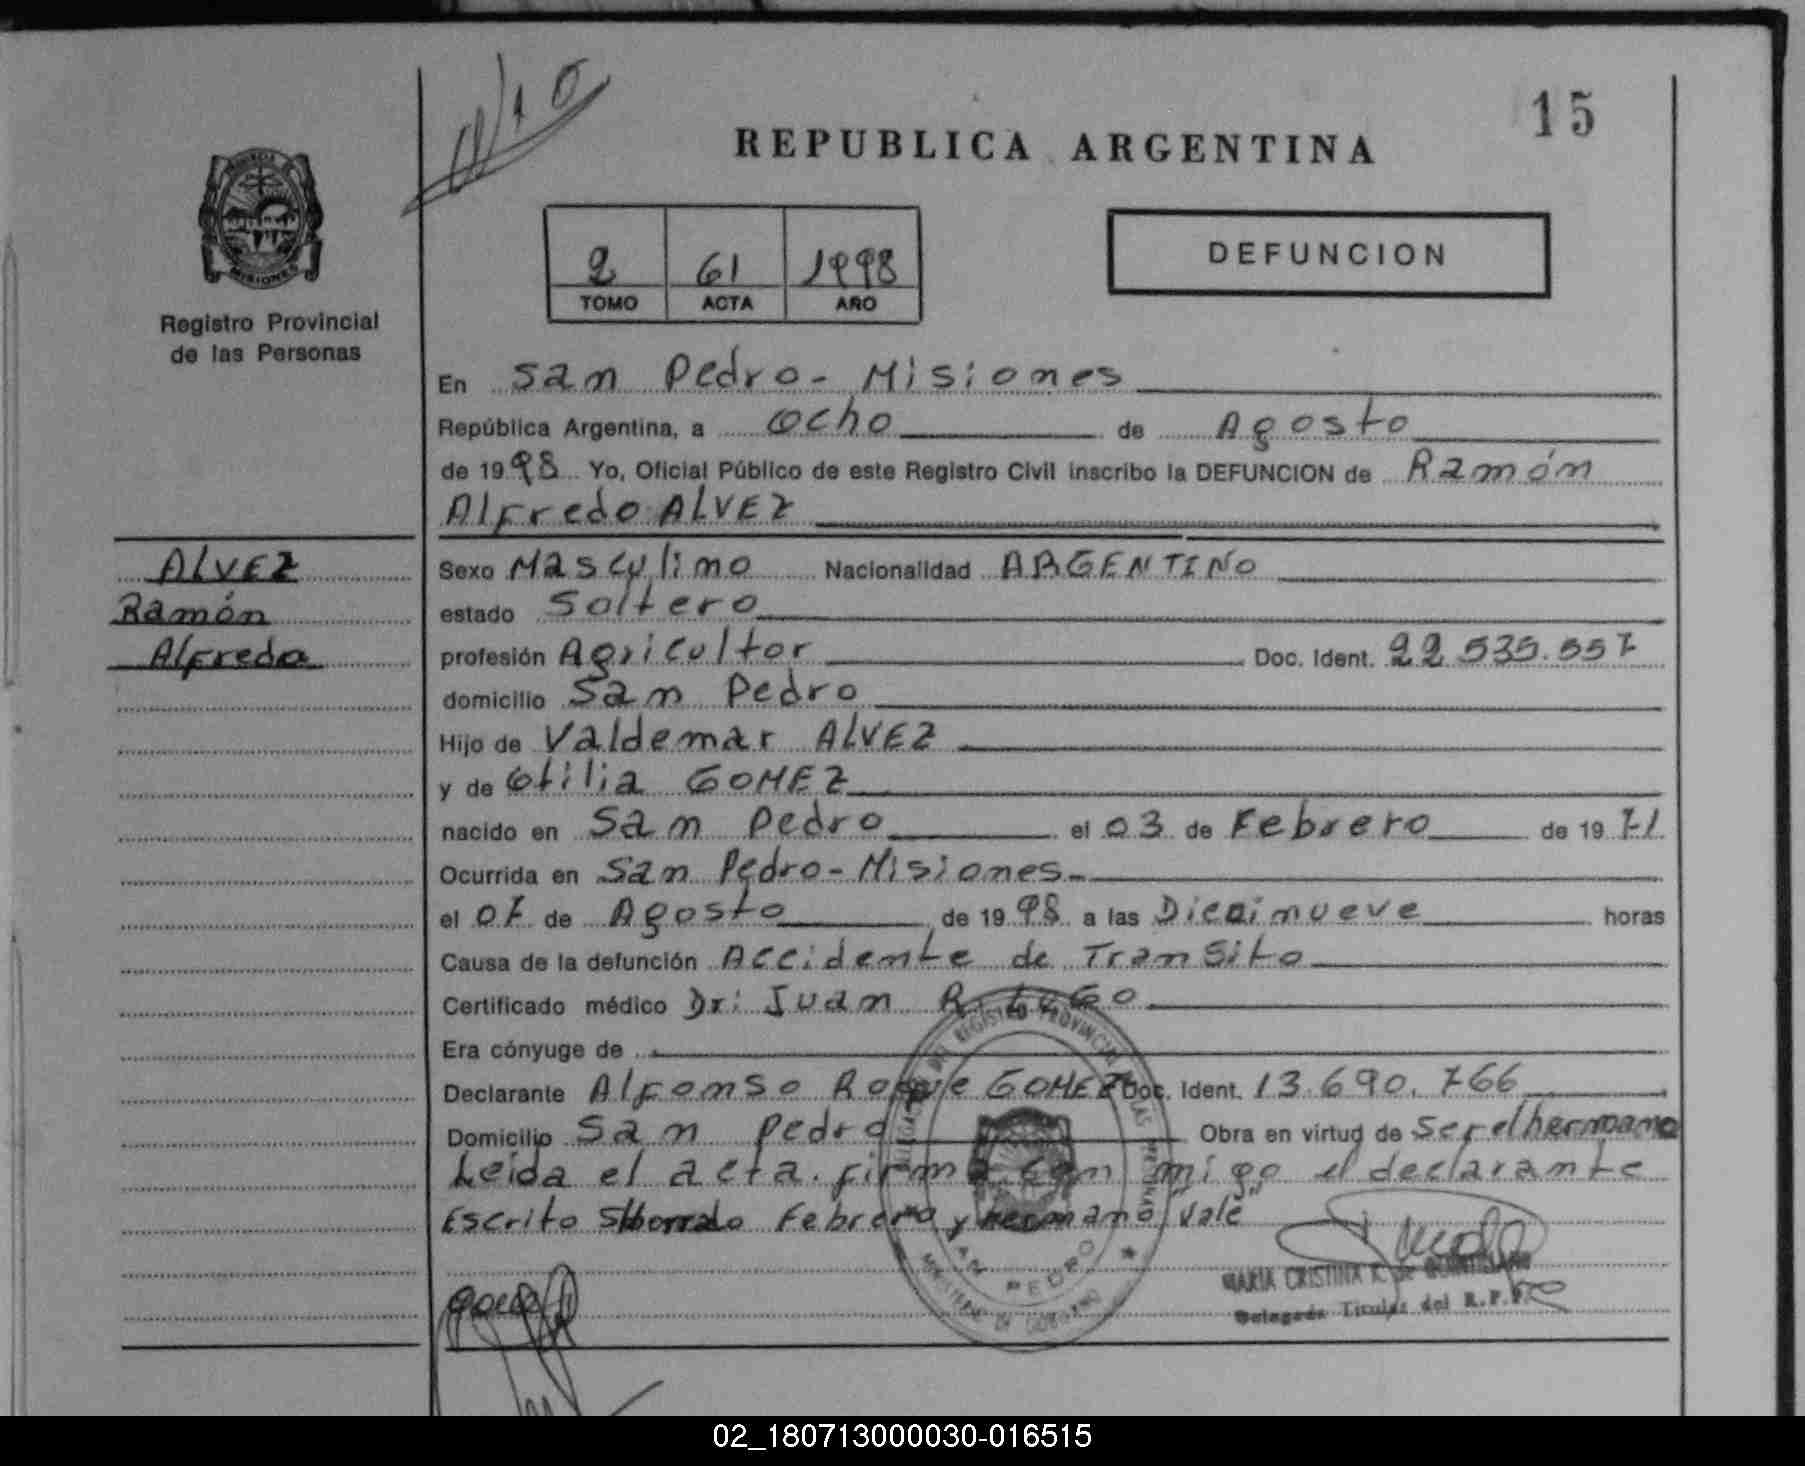 15
REPUBLICA ARGENTINA
MISIONES
Registro Provincial
de las Personas
2 61 1998
TOMO ACTA AÑO
DEFUNCION
En San Pedro - Misiones
República Argentina, a ocho de Agosto
de 1998 Yo, Oficial Público de este Registro Civil inscribo la DEFUNCION de Ramón
Alfredo ALVEZ
ALVEZ
Ramón
Alfredo
Sexo Masculino Nacionalidad ARGENTINO
estado Soltero
profesión Agricultor Doc. Ident. 22.535.557
domicilio San Pedro
Hijo de Valdemar ALVEZ
y de Otilia GOMEZ
nacido en San Pedro el 03 de Febrero de 1971
Ocurrida en San Pedro - Misiones -
el 07 de Agosto de 1998 a las Diecinueve horas
Causa de la defunción Accidente de Transito
Certificado médico Dr: Juan R. LUGO
Era cónyuge de
Declarante Alfonso Roque GOMEZ Doc. Ident. 13.690.766
Domicilio San Pedro Obra en virtud de Ser el hermano
Leida el acta. firma con migo el declarante
Escrito S/borrado Febrero y hermano "Vale"
DEL REGISTRO PROVINCIAL DE LAS PERSONAS
SAN PEDRO
MINISTERIO DE GOBIERNO
MARIA CRISTINA R. de
Delegada Titular del R.P.P.
02_180713000030-016515